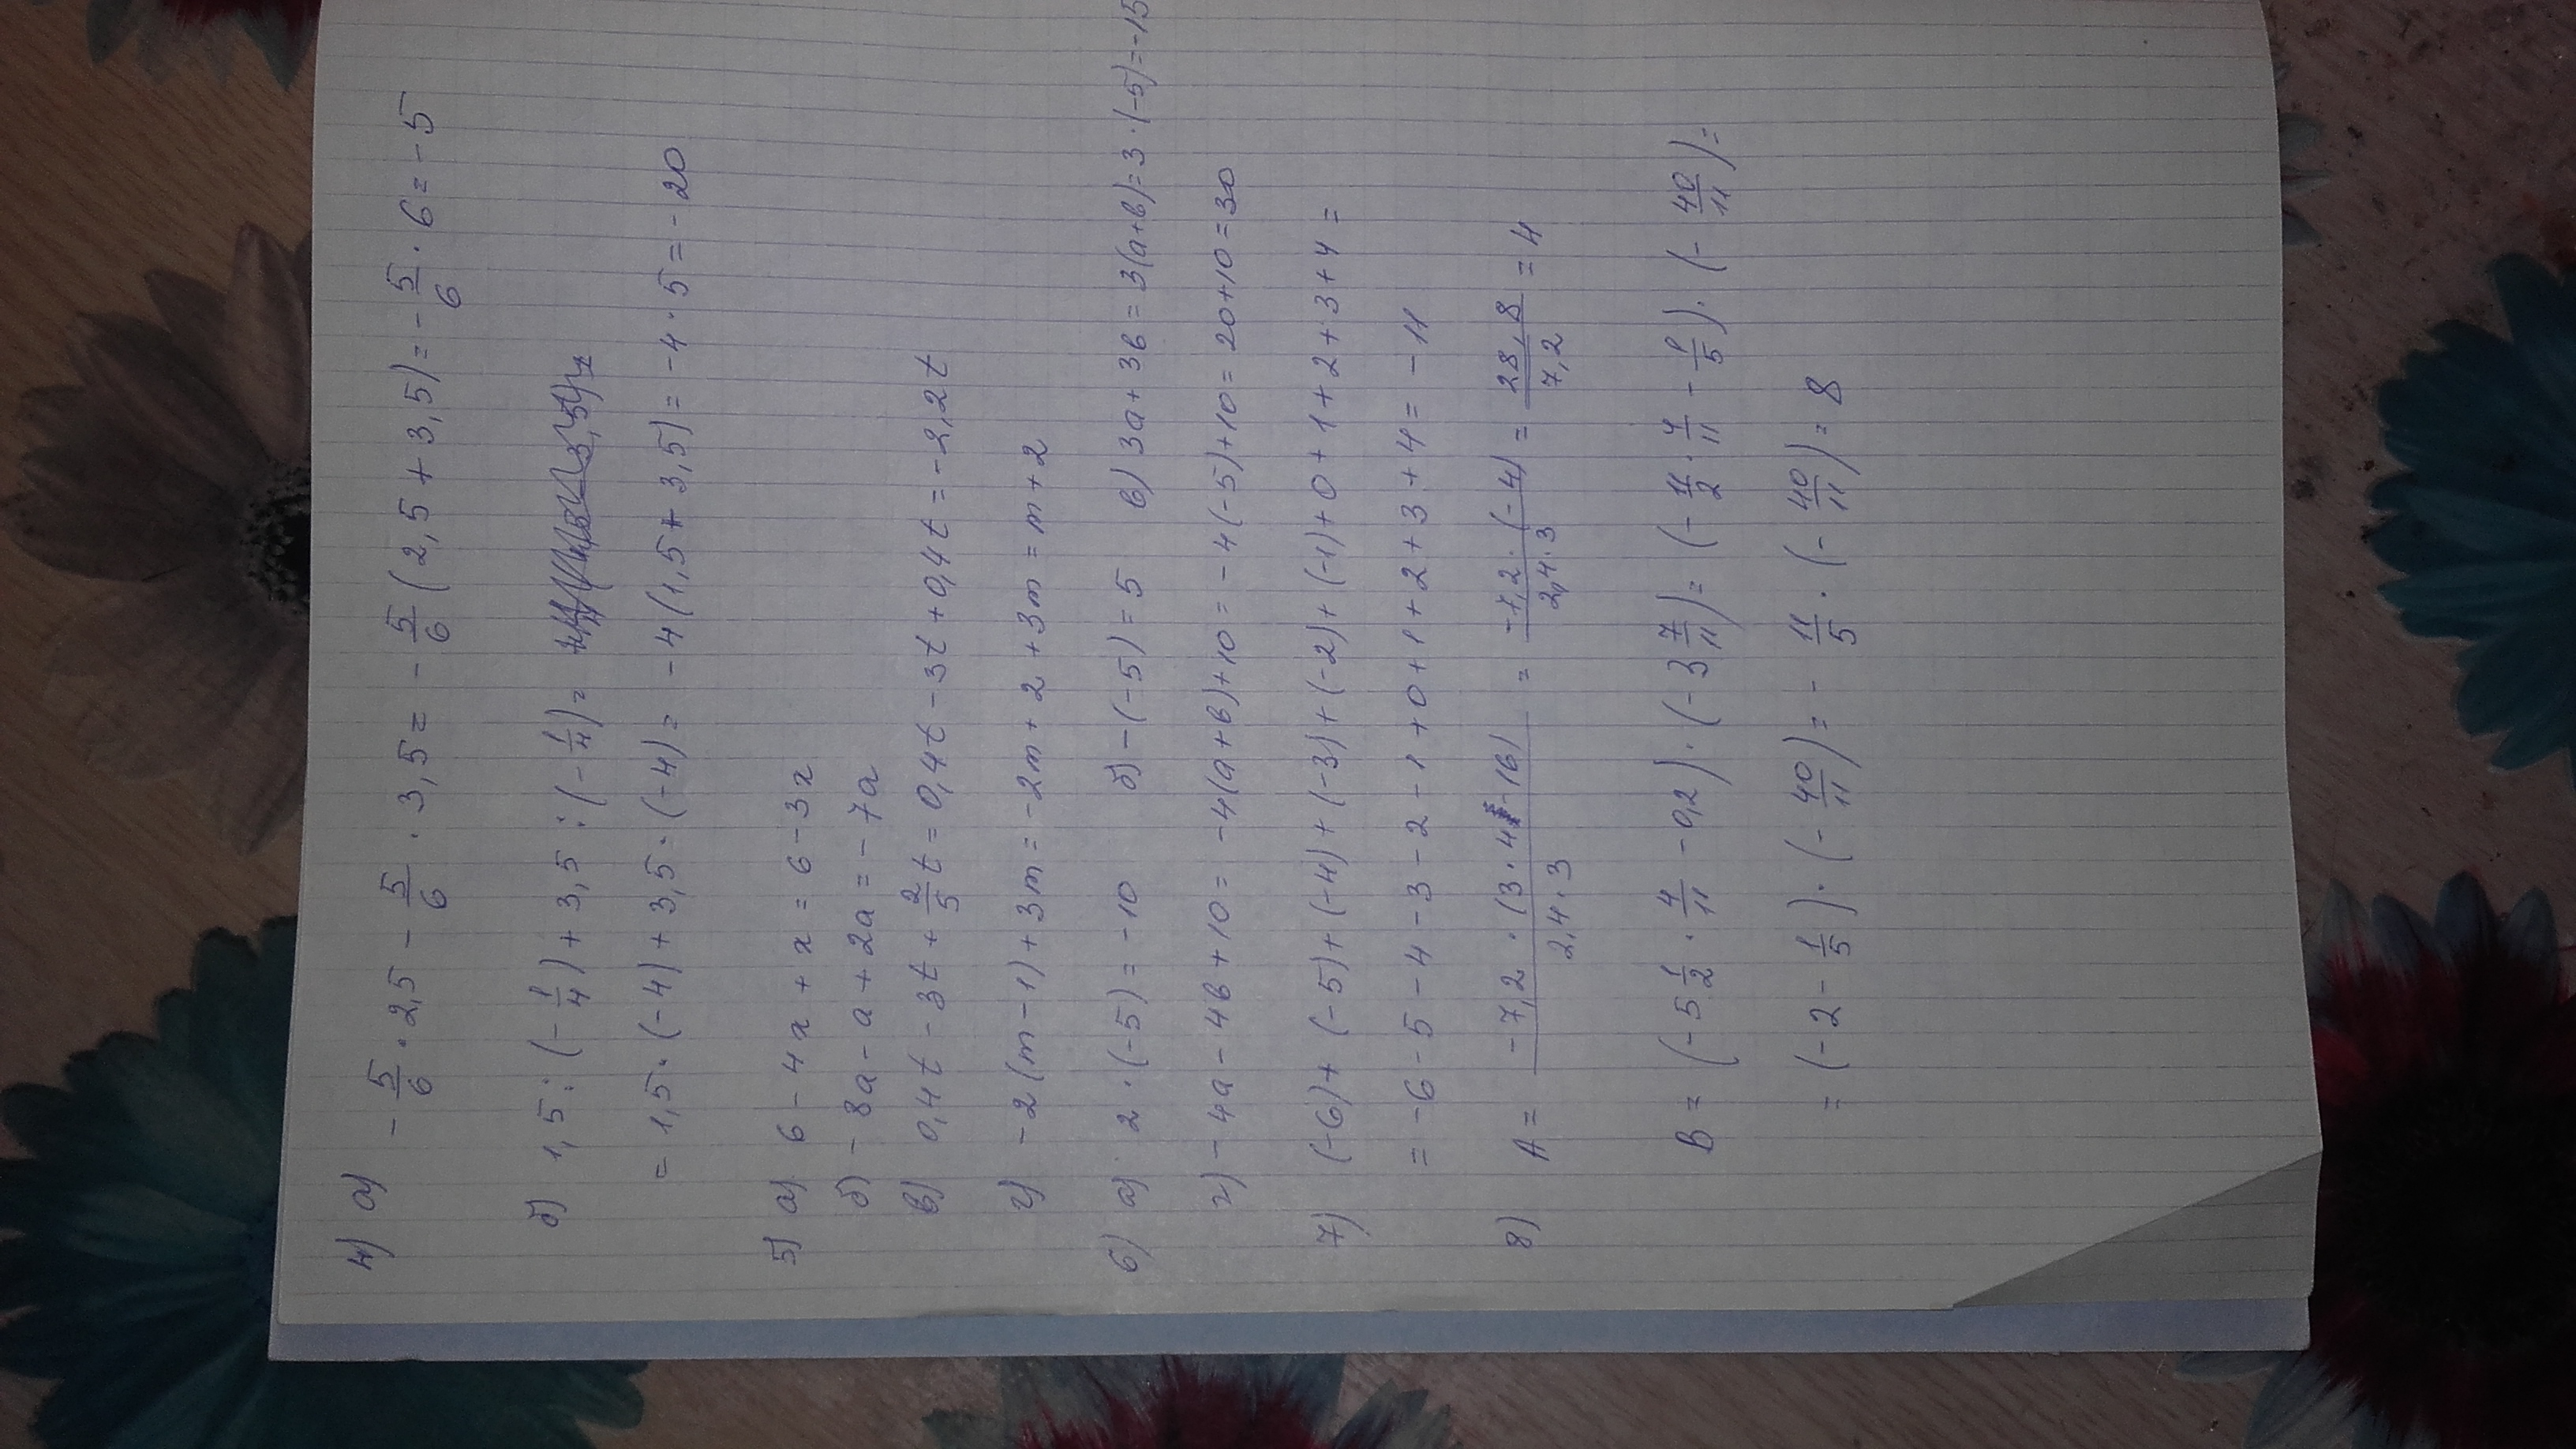 4) а) -5/6 · 2,5 - 5/6 · 3,5 = -5/6 (2,5 + 3,5) = -5/6 · 6 = -5
б) 1,5 : (-1/4) + 3,5 : (-1/4) =
= 1,5 · (-4) + 3,5 · (-4) = -4 (1,5 + 3,5) = -4 · 5 = -20
5) а) 6 - 4x + x = 6 - 3x
б) -8a - a + 2a = -7a
в) 0,4t - 3t + 2/5 t = 0,4t - 3t + 0,4t = -2,2t
г) -2(m-1) + 3m = -2m + 2 + 3m = m + 2
6) а) 2 · (-5) = -10 б) -(-5) = 5 в) 3a + 3в = 3(a+в) = 3 · (-5) = -15
г) -4a - 4в + 10 = -4(a+в) + 10 = -4(-5) + 10 = 20 + 10 = 30
7) (-6) + (-5) + (-4) + (-3) + (-2) + (-1) + 0 + 1 + 2 + 3 + 4 =
= -6 - 5 - 4 - 3 - 2 - 1 + 0 + 1 + 2 + 3 + 4 = -11
8) A = -7,2 · (3 · 4 - 16) / 2,4 · 3 = -7,2 · (-4) / 2,4 · 3 = 28,8 / 7,2 = 4
B = (-5 1/2 · 4/11 - 0,2) · (-3 7/11) = (-11/2 · 4/11 - 1/5) · (-40/11) =
= (-2 - 1/5) · (-40/11) = -11/5 · (-40/11) = 8